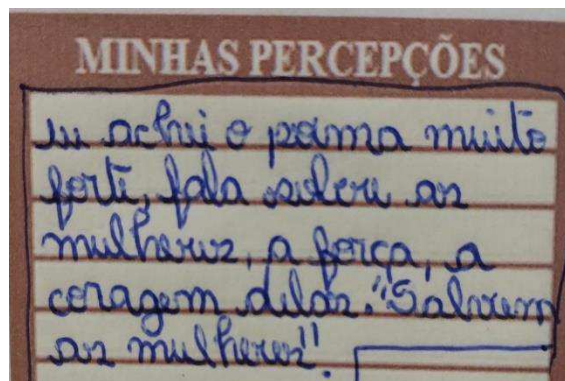 MINHAS PERCEPÇÕES
eu achei o poema muito
forte, fala sobre as
mulheres, a força, a
coragem delas. "Salvem
as mulheres".